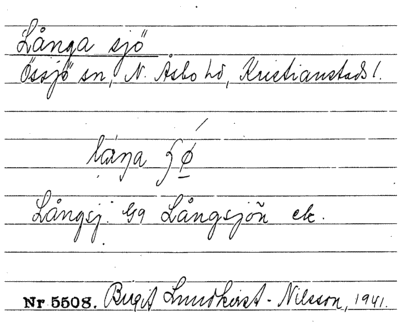 Långa sjö
Össjö sn, N. Åsbo hd, Kristianstads l.
Långsj. Ga Långsjön ek.
Nr 5508. Birgit Lundkvist-Nilsson, 1941.